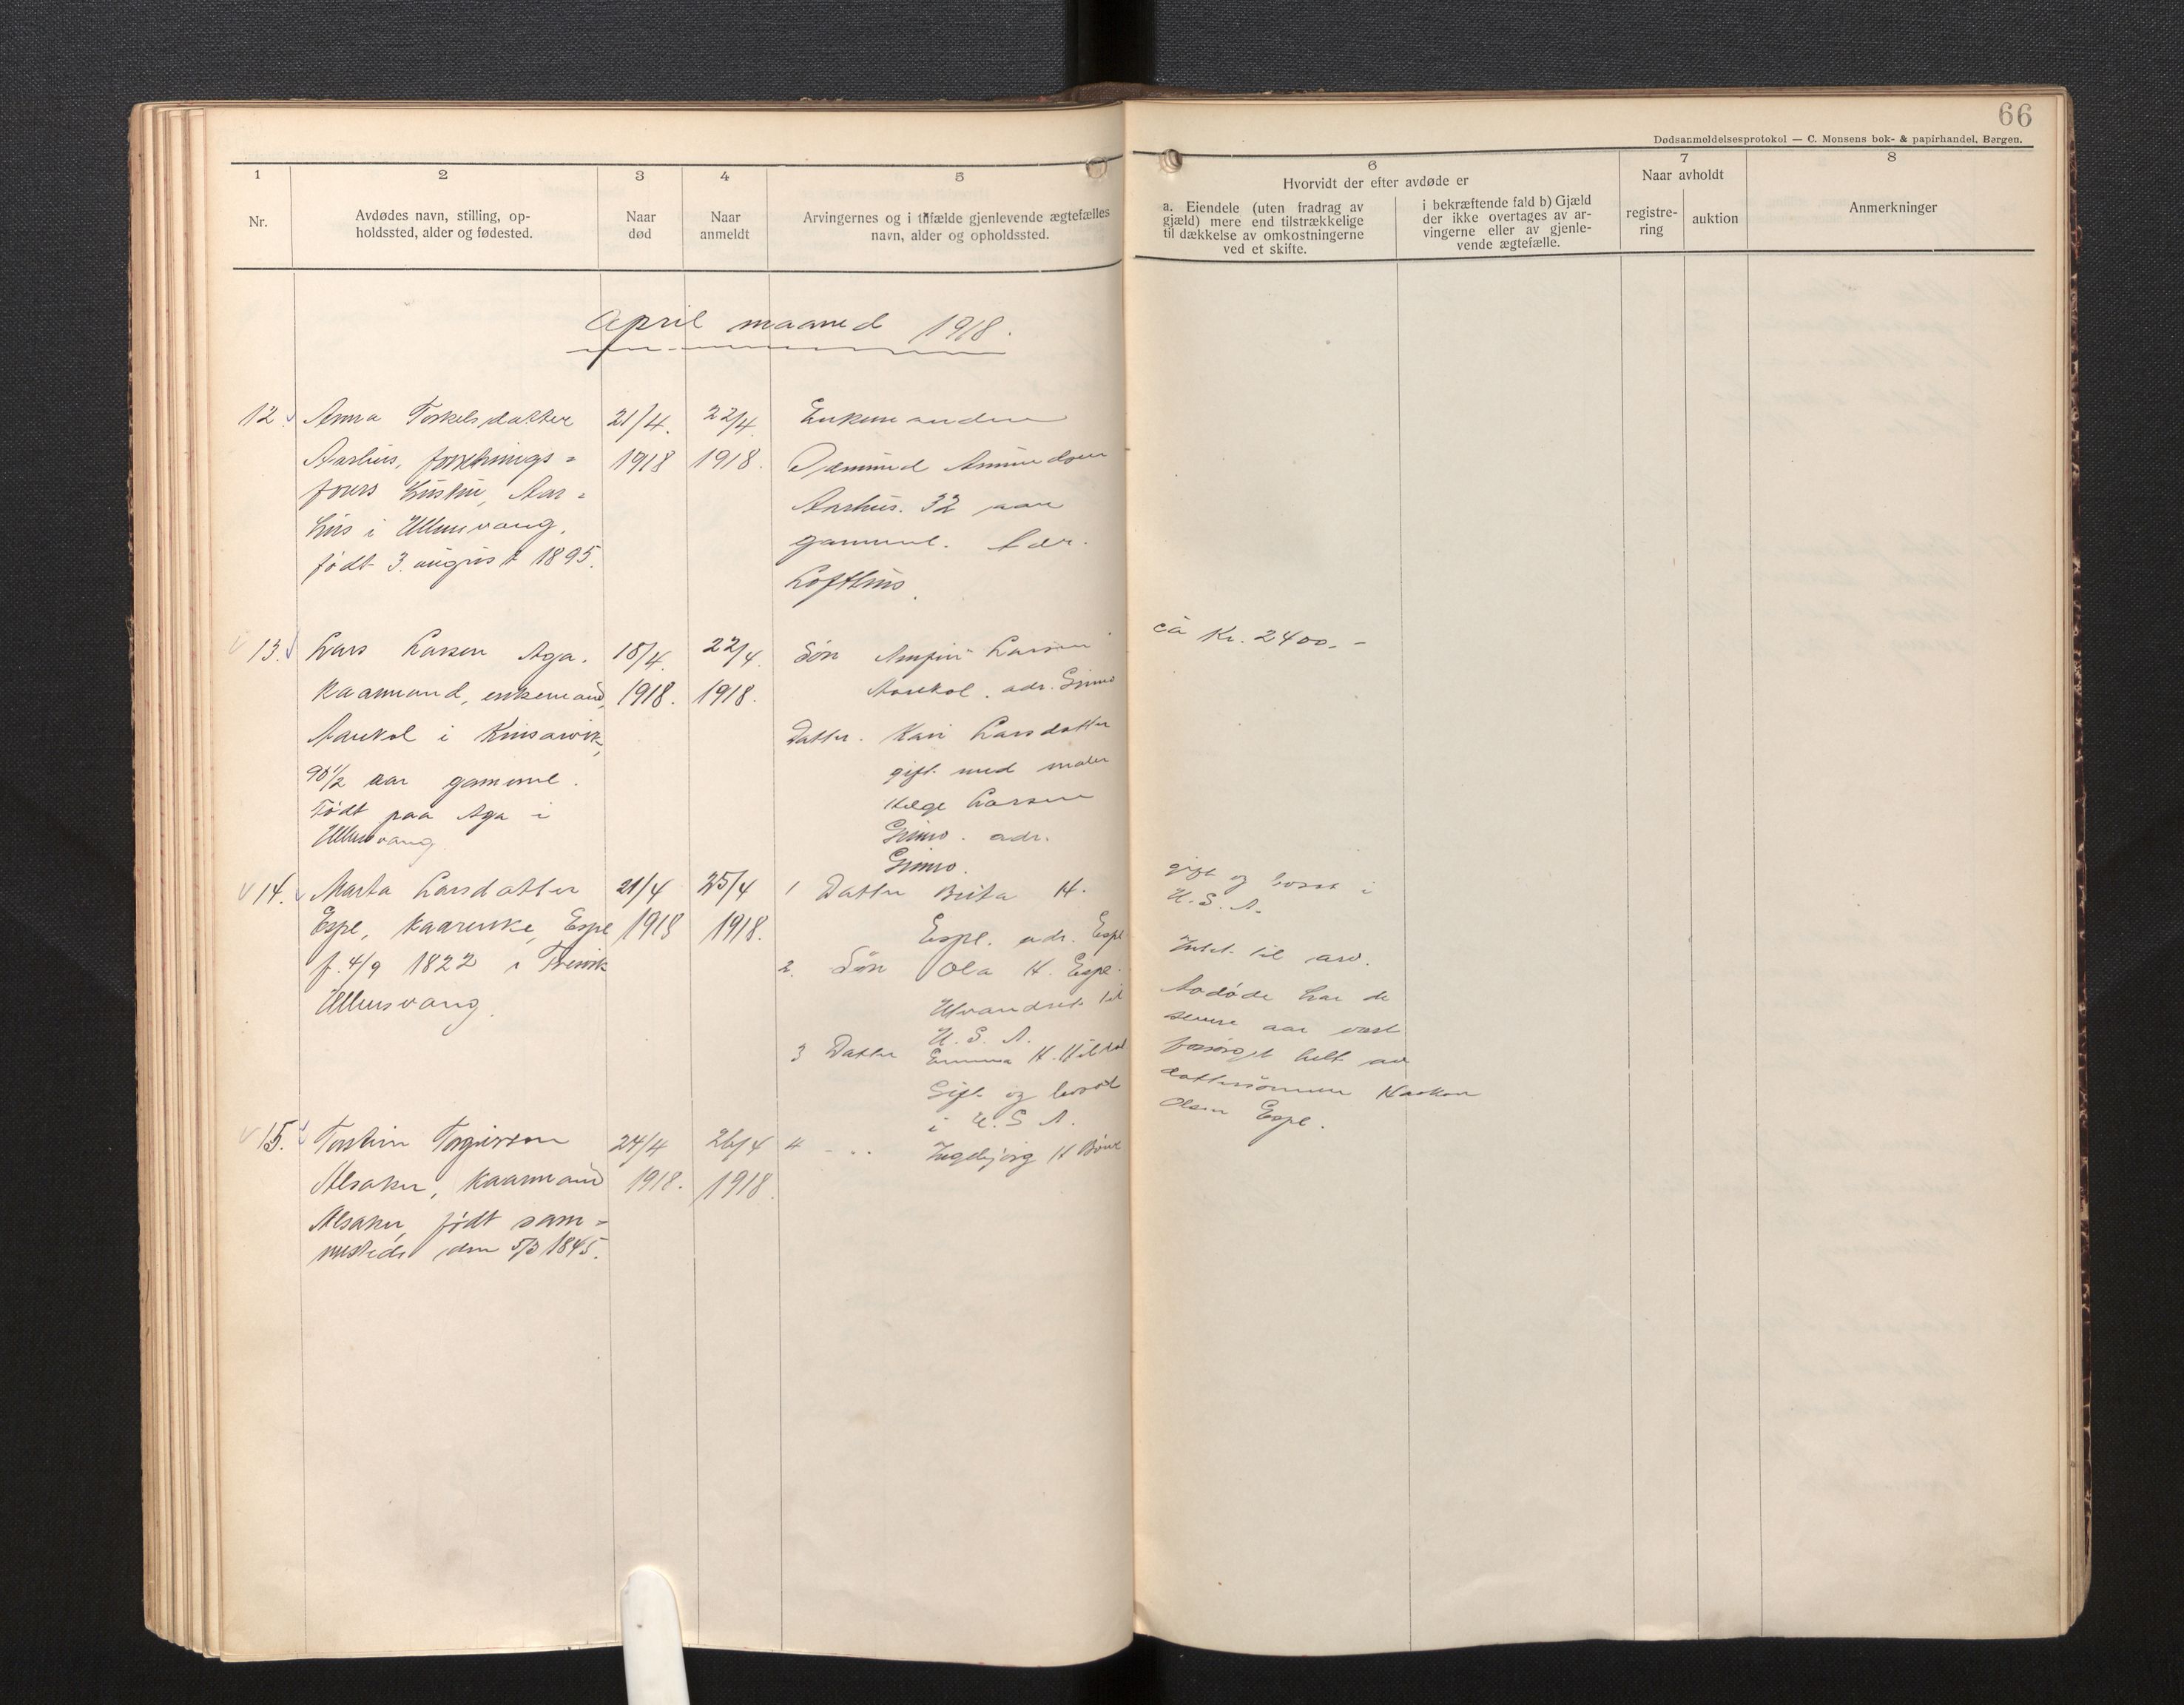 66
Dødsanmeldelsesprotokol — C. Monsens bok- & papirhandel, Bergen.
1 2 3 4 5 6 7 8
Nr.
Avdødes navn, stilling, op-
holdssted, alder og fødested.
Naar
død
Naar
anmeldt
Arvingernes og i tilfælde gjenlevende ægtefælles
navn, alder og opholdssted.
Hvorvidt der efter avdøde er
a. Eiendele (uten fradrag av
gjæld) mere end tilstrækkelige
til dækkelse av omkostningerne
ved et skifte.
i bekræftende fald b) Gjæld
der ikke overtages av ar-
vingerne eller av gjenle-
vende ægtefælle.
Naar avholdt
registre-
ring
auktion
Anmerkninger
April maaned 1918.
12.
Anna Torkelsdatter
Aarhus, forretnings=
førers hustru, Aar=
hus i Ullensvang,
født 3. august 1895.
21/4.
1918
22/4.
1918.
Enkemanden
Amundsen
Aarhus. 32 aar
gammel. Adr.
Lofthus.
13.
Lars Larsen Aga.
Kaarmand, enkemand,
i Kinsarvik,
90 1/2 aar gammel.
Født paa Aga i
Ullensvang
18/4.
1918.
22/4.
1918.
Søn Larsen
adr. Grimo
Datter. Kari Larsdatter
gift med maler
Helge Larsen
Grimo. adr.
Grimo.
ca Kr. 2400.-
14.
Marta Larsdatter
Espe, kaarenke, Espe
f. 4/9 1822 i
Ullensvang.
21/4
1918
25/4
1918.
1 Datter Brita H.
Espe. adr. Espe
2. Søn Ola H. Espe.
Utvandret til
U. S. A.
3 Datter Emma H.
Gift og bosat
i U. S. A.
4 - „ - Ingebjørg H
gift og bosat i
U. S. A.
Intet til arv.
Avdøde har de
senere aar været
forsørget helt av
dattersønnen Haakon
Olsen Espe.
15.
Torstein Torgeirson
Alsaker, kaarmand
Alsaker, født sam=
mesteds den 5/3 1845.
24/4
1918.
26/4
1918.